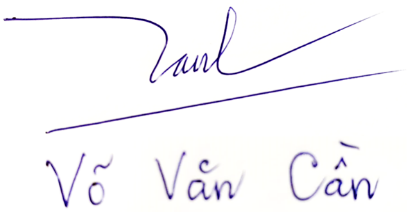 Võ Văn Cần